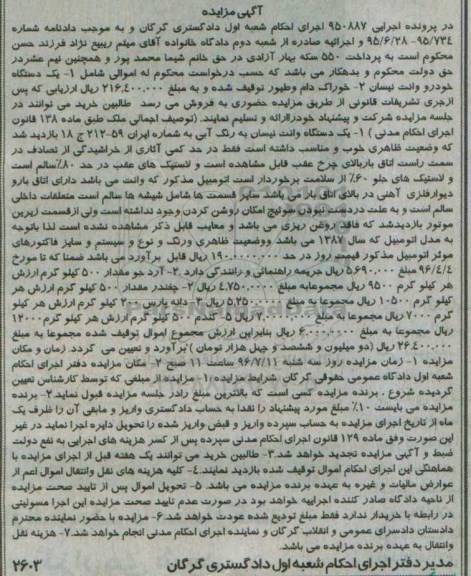 آگهی مزایده
در پرونده اجرایی ۹۵۰۸۸۷ اجرای احکام شعبه اول دادگستری گرگان و به موجب دادنامه شماره
۹۵/۷۳۴- ۹۵/۶/۲۸ و اجرائیه صادره از شعبه دوم دادگاه خانواده آقای میثم ربیع نژاد فرزند حسن
محکوم است به پرداخت ۵۵۰ سکه بهار آزادی در حق خانم شیما محمد پور و همچنین نیم عشر در
حق دولت محکوم و بدهکار می باشد که حسب درخواست محکوم له اموالی شامل ۱- یک دستگاه
خودرو وانت نیسان ۲- خوراک دام وطیور توقیف شده و به مبلغ ۲۱۶.۴۰۰.۰۰۰ ریال ارزیابی که پس
ازجری تشریفات قانونی از طریق مزایده حضوری به فروش می رسد طالبین خرید می توانند در
جلسه مزایده شرکت و پیشنهاد خودراارائه و تسلیم نمایند. (توصیف اجمالی ملک طبق ماده ۱۳۸ قانون
اجرای احکام مدنی ) ۱- یک دستگاه وانت نیسان به رنگ آبی به شماره ایران ۵۹-۲۱۲ ج ۱۸ بازدید شد
که وضعیت ظاهری خوب و مناسب داشته است فقط در حد کمی آثاری از خراشیدگی از تصادف در
سمت راست اتاق باربالای چرخ عقب قابل مشاهده است و لاستیک های عقب در حد ۸۰٪سالم است
و لاستیک های جلو ۶۰٪ از سلامت برخوردار است اتومبیل مذکور که وانت می باشد دارای اتاق بارو
دیوارفلزی آهنی در بالای اتاق بار می باشد سایر قسمت ها شامل شیشه ها سالم است متعلقات داخلی
سالم است و به علت دردست نبودن سوئیچ امکان روشن کردن وجود نداشته است ولی ازقسمت زیرین
موتور بازدیدشد که فاقد روغن ریزی می باشد و معایب قابل ذکر مشاهده نشده است لذا باتوجه
به مدل اتومبیل که سال ۱۳۸۷ می باشد ووضعیت ظاهری ورنگ و نوع و سیستم و سایر فاکتورهای
موثر اتومبیل مذکور قیمت روز در حد ۱۹۰.۰۰۰.۰۰۰ ریال قابل برآورد می باشد ضمنا که تا مورخ
۹۶/۴/۴ مبلغ ۵.۶۹۰.۰۰۰ ریال جریمه راهنمائی و رانندگی دارد .۲- آرد جو مقدار ۵۰۰ کیلو گرم ارزش
هر کیلو گرم ۹۵۰۰ ریال مجموعابه مبلغ ۴.۷۵۰.۰۰۰ ریال ۳- چغندر مقدار ۵۰۰ کیلو گرم ارزش هر
کیلو گرم ۱۰۵۰۰ ریال مجموعا به مبلغ ۵.۲۵۰.۰۰۰ ریال ۴- دانه پارس ۲۰۰ کیلو گرم ارزش هر کیلو
گرم ۷۰۰۰ ریال مجموعا به مبلغ ۷.۰۰۰.۰۰۰ ریال ۵- گندم ۵۰۰ کیلو گرم ارزش هر کیلو گرم۱۲۰۰۰
ریال مجموعا به مبلغ ۶.۰۰۰.۰۰۰ ریال بنابراین ارزش مجموع اموال توقیف شده مجموعا به مبلغ
۲۶.۴۰۰.۰۰۰ ریال (دو میلیون و ششصد و چهل هزار تومان ) برآورد و تعیین می گردد. زمان و مکان
مزایده ۱- زمان مزایده روز سه شنبه ۹۶/۷/۱۱ ساعت ۱۱ صبح ۲- مکان مزایده دفتر اجرای احکام
شعبه اول دادگاه عمومی حقوقی گرگان شرایط مزایده ۱- مزایده از مبلغی که توسط کارشناس تعیین
گردیده شروع . برنده مزایده کسی است که بالاترین مبلغ رادر جلسه مزایده قبول نماید.۲- برنده
مزایده می بایست ۱۰٪ مبلغ مورد پیشنهاد را نقدا به حساب دادگستری واریز و مابقی آن را ظرف یک
ماه از تاریخ اجرای مزایده به حساب سپرده واریز و قبض واریز شده را تحویل دایره اجرا نماید در غیر
این صورت وفق ماده ۱۲۹ قانون اجرای احکام مدنی سپرده پس از کسر هزینه های اجرایی به نفع دولت
ضبط و آگهی مزایده تجدید خواهد شد.۳- طالبین خرید می توانند یک هفته قبل از اجرای مزایده با
هماهنگی این اجرای احکام اموال توقیف شده بازدید نمایند.۴- کلیه هزینه های نقل وانتقال اموال اعم از
عوارض مالیات و غیره به عهده برنده مزایده می باشد. ۵- تحویل اموال پس از تایید صحت مزایده
از ناحیه دادگاه صادر کننده اجراییه خواهد بود در صورت عدم تایید صحت مزایده این اجرا مسولیتی
در رابطه با خریدار ندارد فقط مبلغ تودیع شده عودت خواهد شد.۶- مزایده با حضور نماینده محترم
دادستان دادسرای عمومی و انقلاب گرگان و نماینده اجرای احکام مدنی انجام خواهد شد.۷- هزینه نقل
وانتقال به عهده برنده مزایده می باشد.
مدیر دفتر اجرای احکام شعبه اول دادگستری گرگان ۲۶۰۳